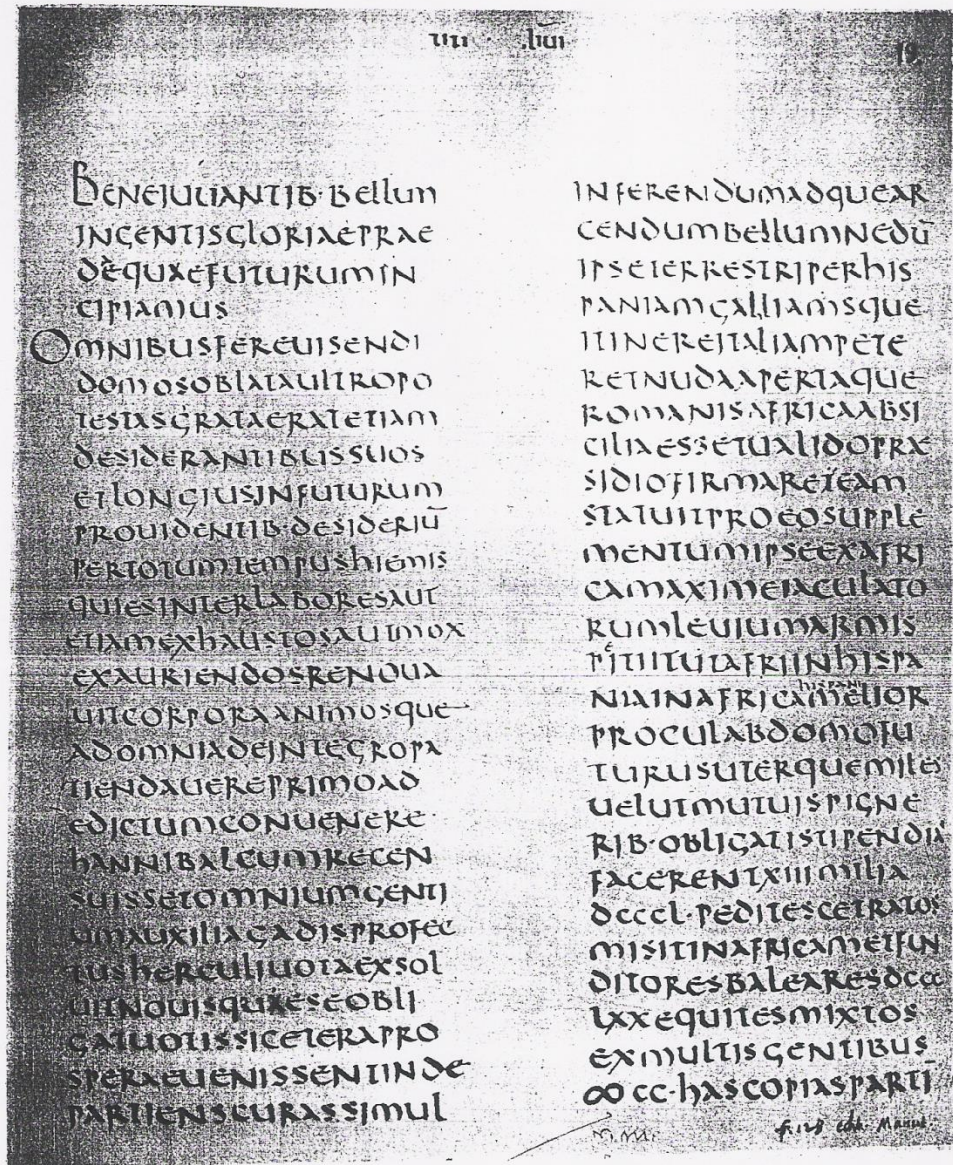 19
BENEIUUANTIB· BELLUM
INGENTISGLORIAEPRAE
DEQUAEFUTURUMIN
CIPIAMUS
OMNIBUSFEREUISENDI
DOMOSOBLATAULTROPO
TESTASGRATAERATETIAM
DESIDERANTIBUSSUOS
ETLONGIUSINFUTURUM
PROUIDENTIB·DESIDERIŪ
PERTOTUMTEMPUSHIEMIS
QUIESINTERLABORESAUT
ETIAMEXHAUSTOSAUTMOX
EXAURIENDOSRENOUA
UITCORPORAANIMOSQUE
ADOMNIADEINTEGROPA
TIENDAUEREPRIMOAD
EDICTUMCONUENERE·
HANNIBALCUMRECEN
SUISSETOMNIUMGENTI
UMAUXILIAGADISPROFEC
TUSHERCULIUOTAEXSOL
UITNOUISQUAESEOBLI
GATUOTISSICETERAPRO
SPERAEUENISSENTINDE
PARTIENSCURASSIMUL
INFERENDUMADQUEAR
CENDUMBELLUMNEDŪ
IPSETERRESTRIPERHIS
PANIAMGALLIAMSQUE
ITINEREITALIAMPETE
RETNUDAAPERTAQUE
ROMANISAFRICAABSI
CILIAESSETUALIDOPRA
SIDIOFIRMARETEAM
STATUITPROEOSUPPLE
MENTUMIPSEEXAFRI
CAMAXIMEIACULATO
RUMLEUIUMARMIS
PETIITUTAFRIINHISPA
NIAINAFRICAHISPANIMELIOR
PROCULABDOMOFU
TURUSUTERQUEMILES
UELUTMUTUISPIGNE
RIB·OBLIGATISTIPENDIA
FACERENTXIIIMILIA
DCCCL·PEDITESCETRATOS
MISITINAFRICAMETFUN
DITORESBALEARESDCCC
LXXEQUITESMIXTOS
EXMULTISGENTIBUS
ꝏCC·HASCOPIASPARTĪ